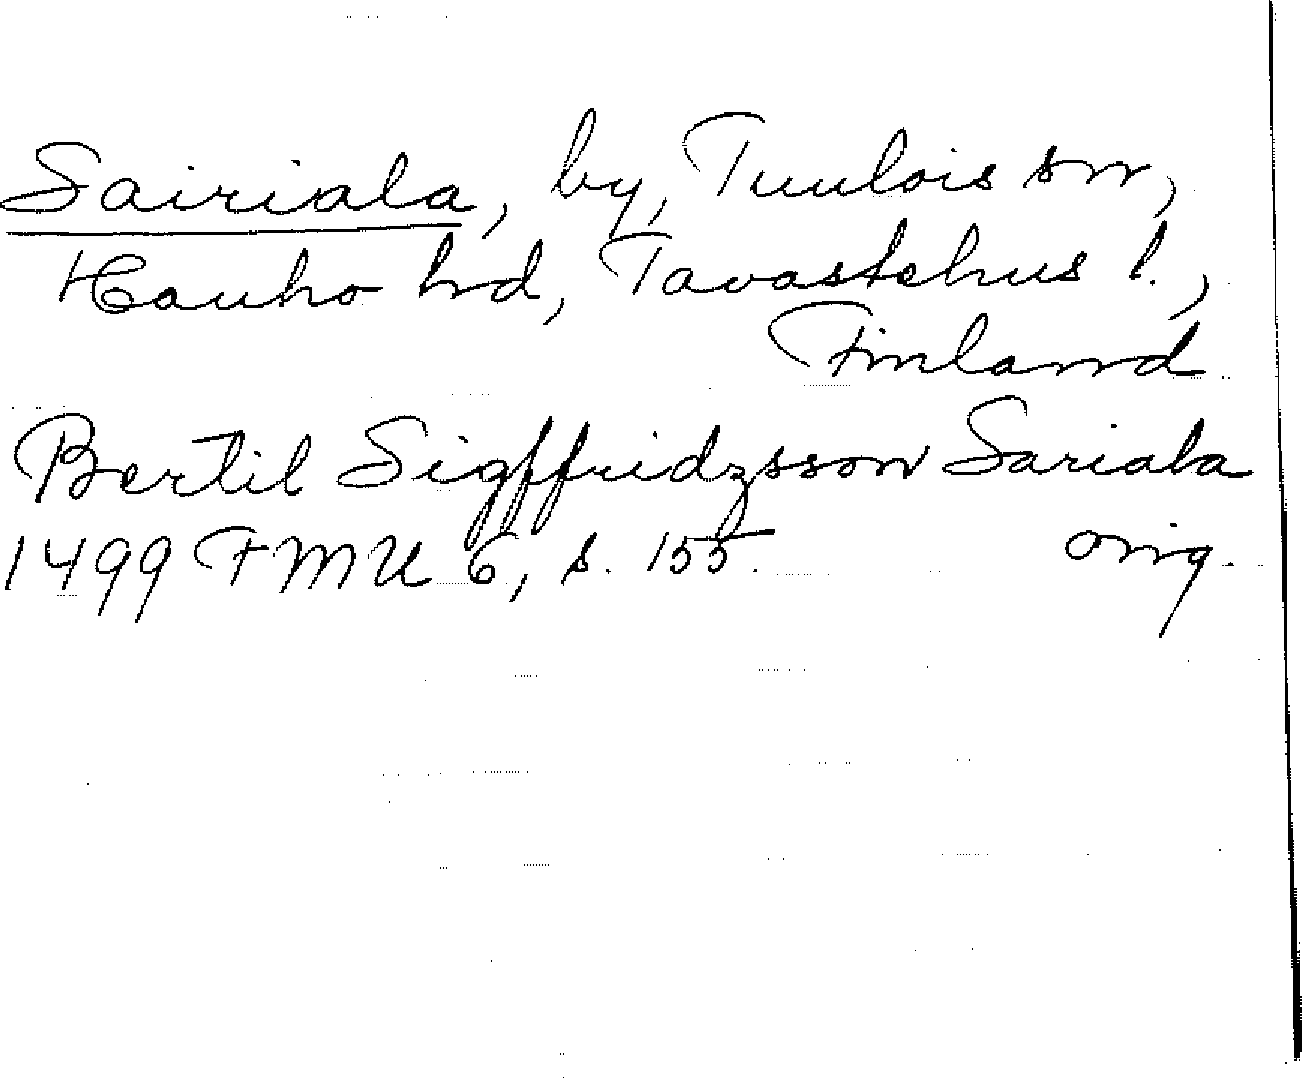 Sairiala, by, Tuulois sn,
Hauho hd, Tavastehus l.,
Finland
Bertil Sigffridzsson Sariala
1499 FMU 6, s. 155. orig.